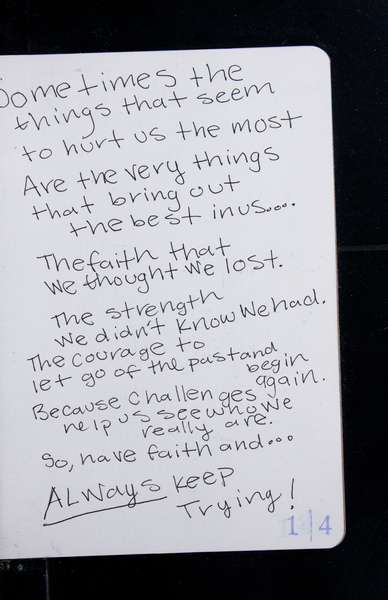 Sometimes the
things that seem
to hurt us the most
Are the very things
that bring out
the best in us....
The faith that
We thought We lost.
The strength
We didn't Know We had.
The courage to
let go of the past and
begin
again.
Because challenges
help us see who We
really are.
So, have faith and...
ALWAys keep
Trying!
1|4